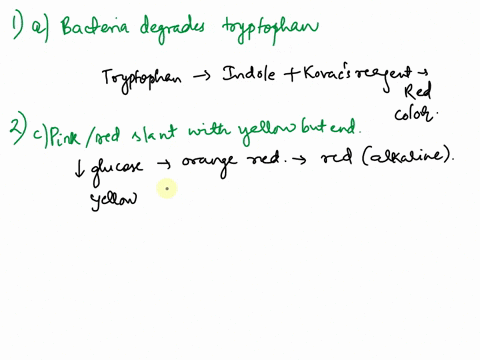 1) a) Bacteria degrades tryptophan
Tryptophan → Indole + Kovac's reagent →
Red
color.
2) c) Pink/red slant with yellow but end.
↓ glucose → orange red. → red (alkaline).
yellow